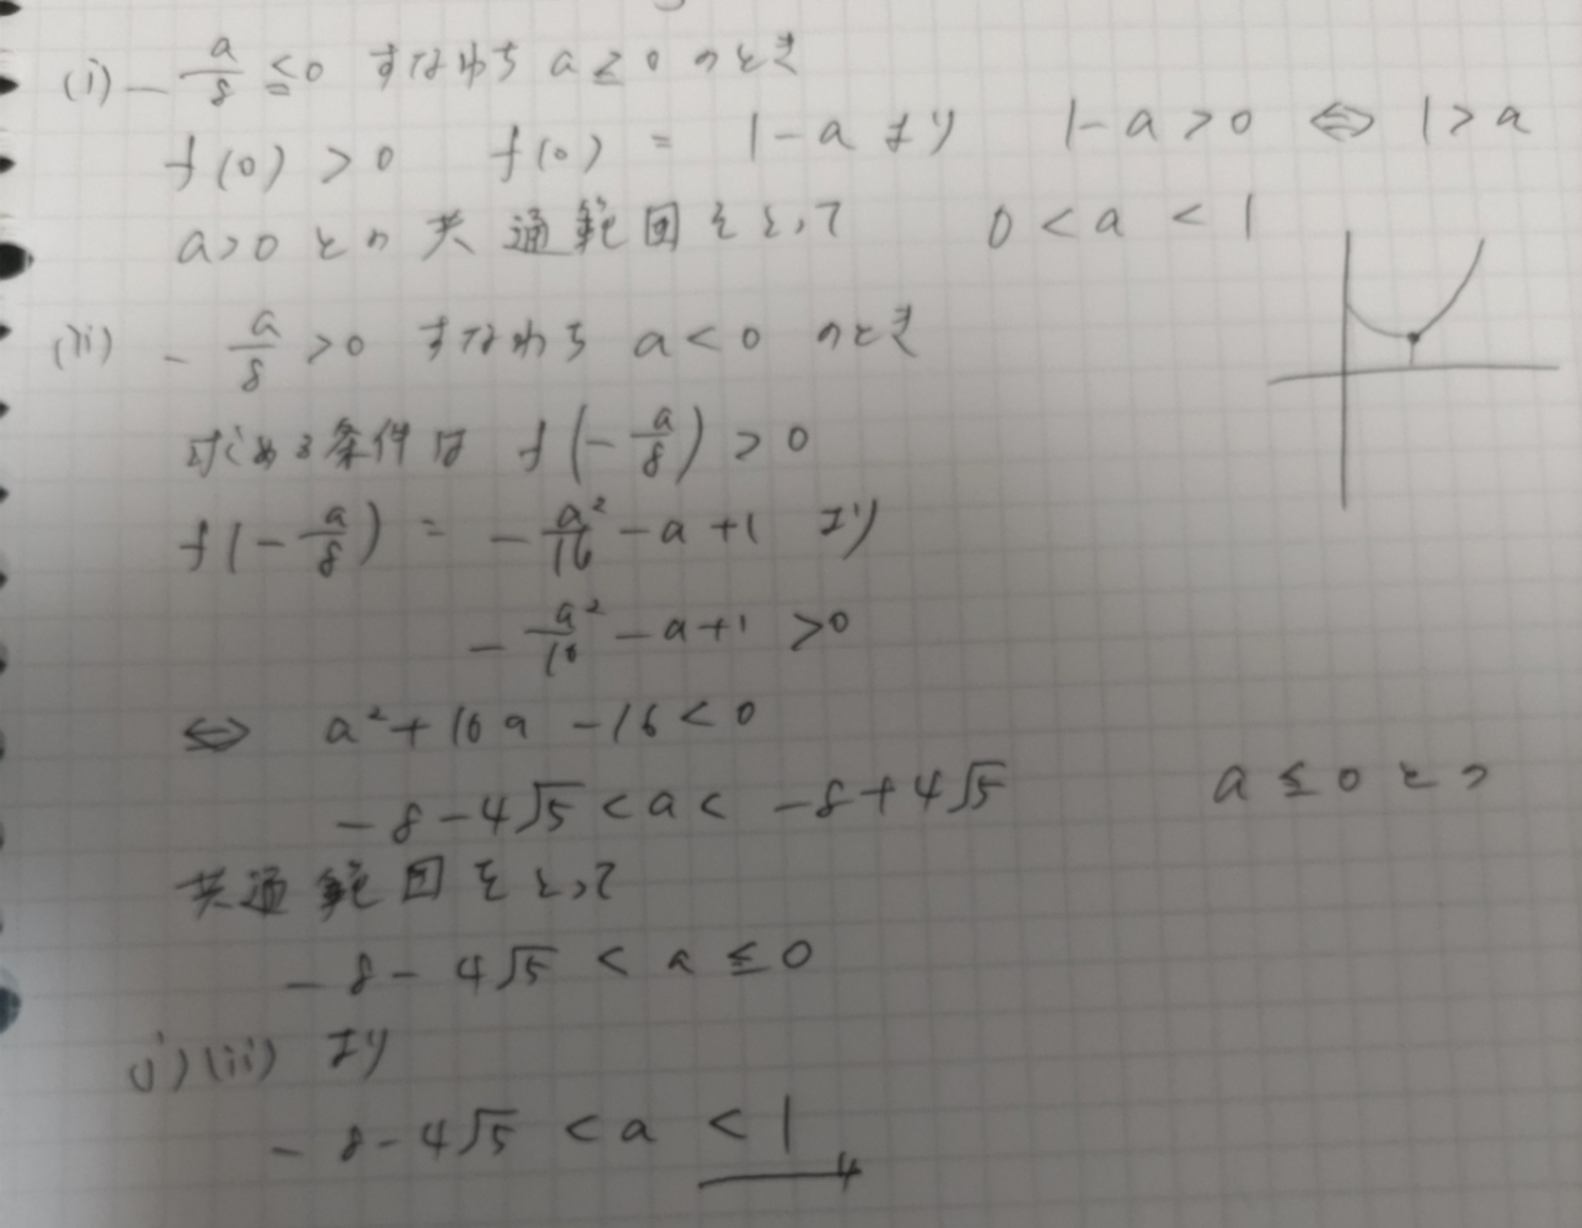 (i) -a/8 ≦ 0 すなわち a ≧ 0 のとき
f(0) > 0 f(0) = 1-a より 1-a > 0 ⇔ 1 > a
a>0 との共通範囲をとって 0 < a < 1
(ii) -a/8 > 0 すなわち a < 0 のとき
求める条件は f(-a/8) > 0
f(-a/8) = -a²/16 - a + 1 より
-a²/16 - a + 1 > 0
⇔ a² + 16a - 16 < 0
-8 - 4√5 < a < -8 + 4√5 a ≦ 0 との
共通範囲をとって
-8 - 4√5 < a ≦ 0
(i)(ii) より
-8 - 4√5 < a < 1